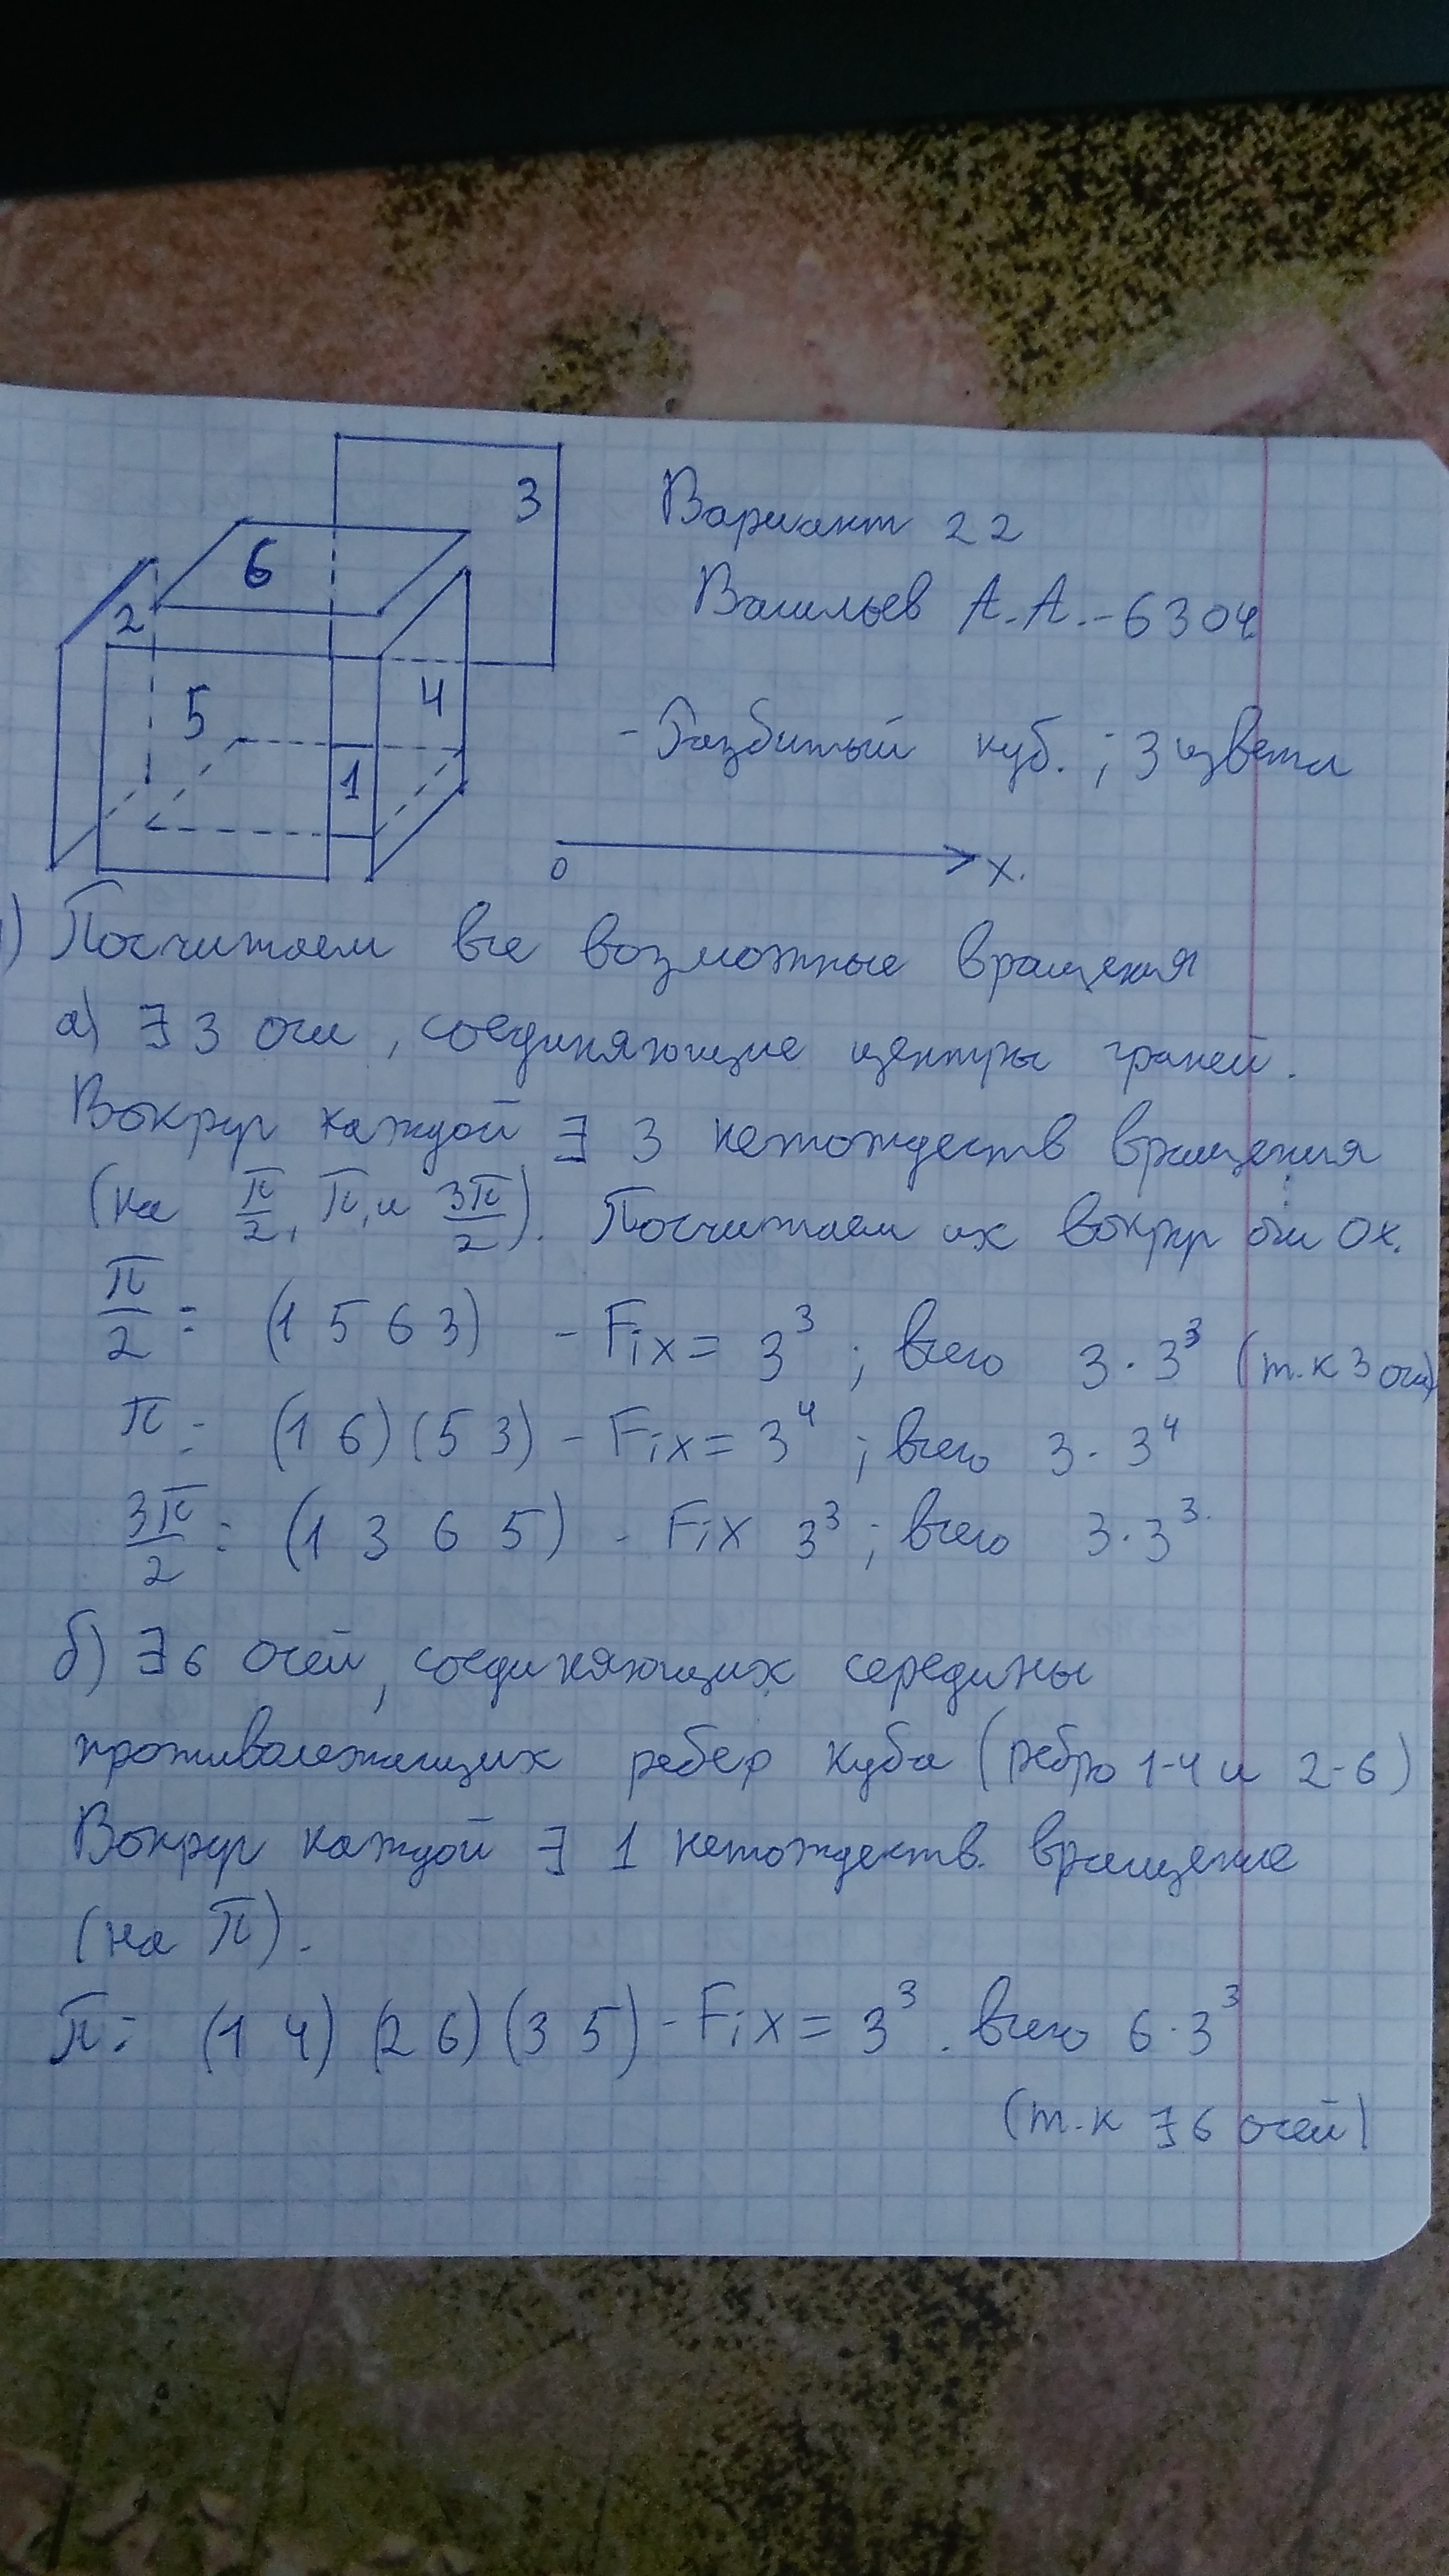 Вариант 22
Васильев А.А.-6304
- Разбитый куб. ; 3 цвета
2
6
3
5
1
4
0
x.
) Посчитаем все возможные вращения
а) ∃ 3 оси, соединяющие центры граней.
Вокруг каждой ∃ 3 нетождеств вращения
(на π/2, π, и 3π/2). Посчитаем их вокруг оси Ox.
π/2 : (1 5 6 3) - Fix = 3³ ; всего 3·3³ (т.к 3 оси)
π : (1 6)(5 3) - Fix = 3⁴ ; всего 3·3⁴
3π/2 : (1 3 6 5) - Fix 3³ ; всего 3·3³.
б) ∃ 6 осей, соединяющих середины
противолежащих ребер куба (ребро 1-4 и 2-6)
Вокруг каждой ∃ 1 нетождеств. вращение
(на π).
π: (1 4) (2 6) (3 5) - Fix = 3³. всего 6·3³
(т.к ∃ 6 осей)